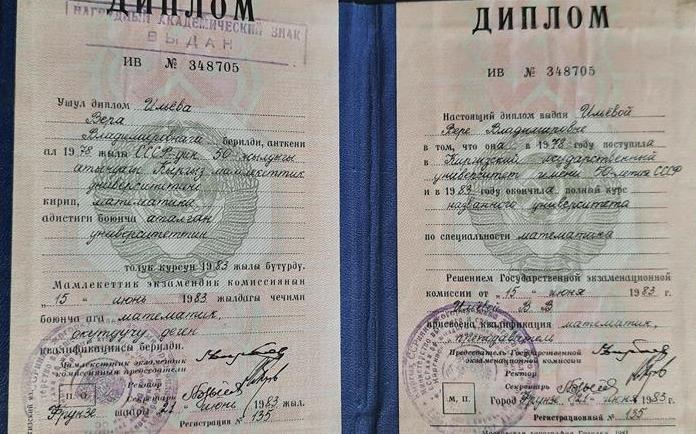 ДИПЛОМ
НАГРУДНЫЙ АКАДЕМИЧЕСКИЙ ЗНАК
ВЫДАН
ИВ № 348705
Ушул диплом Ильева
Вера
Владимировнага берилди, анткени
ал 1978 жылы СССР-дин 50 жылдыгы
атындагы Кыргыз мамлекеттик
университетине
кирип, математика
адистиги боюнча аталган
университеттин
толук курсун 1983 жылы бүтүрдү.
Мамлекеттик экзамендик комиссиянын
"15" июнь 1983 жылдагы чечими
боюнча ага математик,
окутуучу деген
квалификациясы берилди.
Мамлекеттик экзамендик
комиссиянын председатели
Ректор
Секретарь
П. О.
Фрунзе шаары "21" июнь 1983 жыл.
Регистрация № 135
ДИПЛОМ
ИВ № 348705
Настоящий диплом выдан Ильевой
Вере Владимировне
в том, что она в 1978 году поступила
в Киргизский государственный
университет имени 50-летия СССР
и в 1983 году окончила полный курс
названного университета
по специальности математика
Решением Государственной экзаменационной
комиссии от "15" июня 1983 г.
Ильевой В. В.
присвоена квалификация математик,
преподаватель
Председатель Государственной
экзаменационной комиссии
Ректор
Секретарь
М. П.
Город Фрунзе "21" июня 1983 г.
Регистрационный № 135